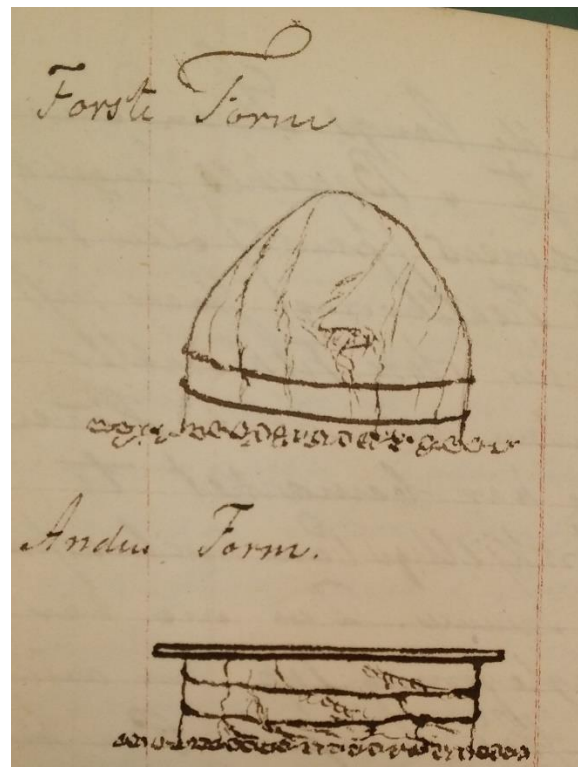 Forste Form
Anden Form.